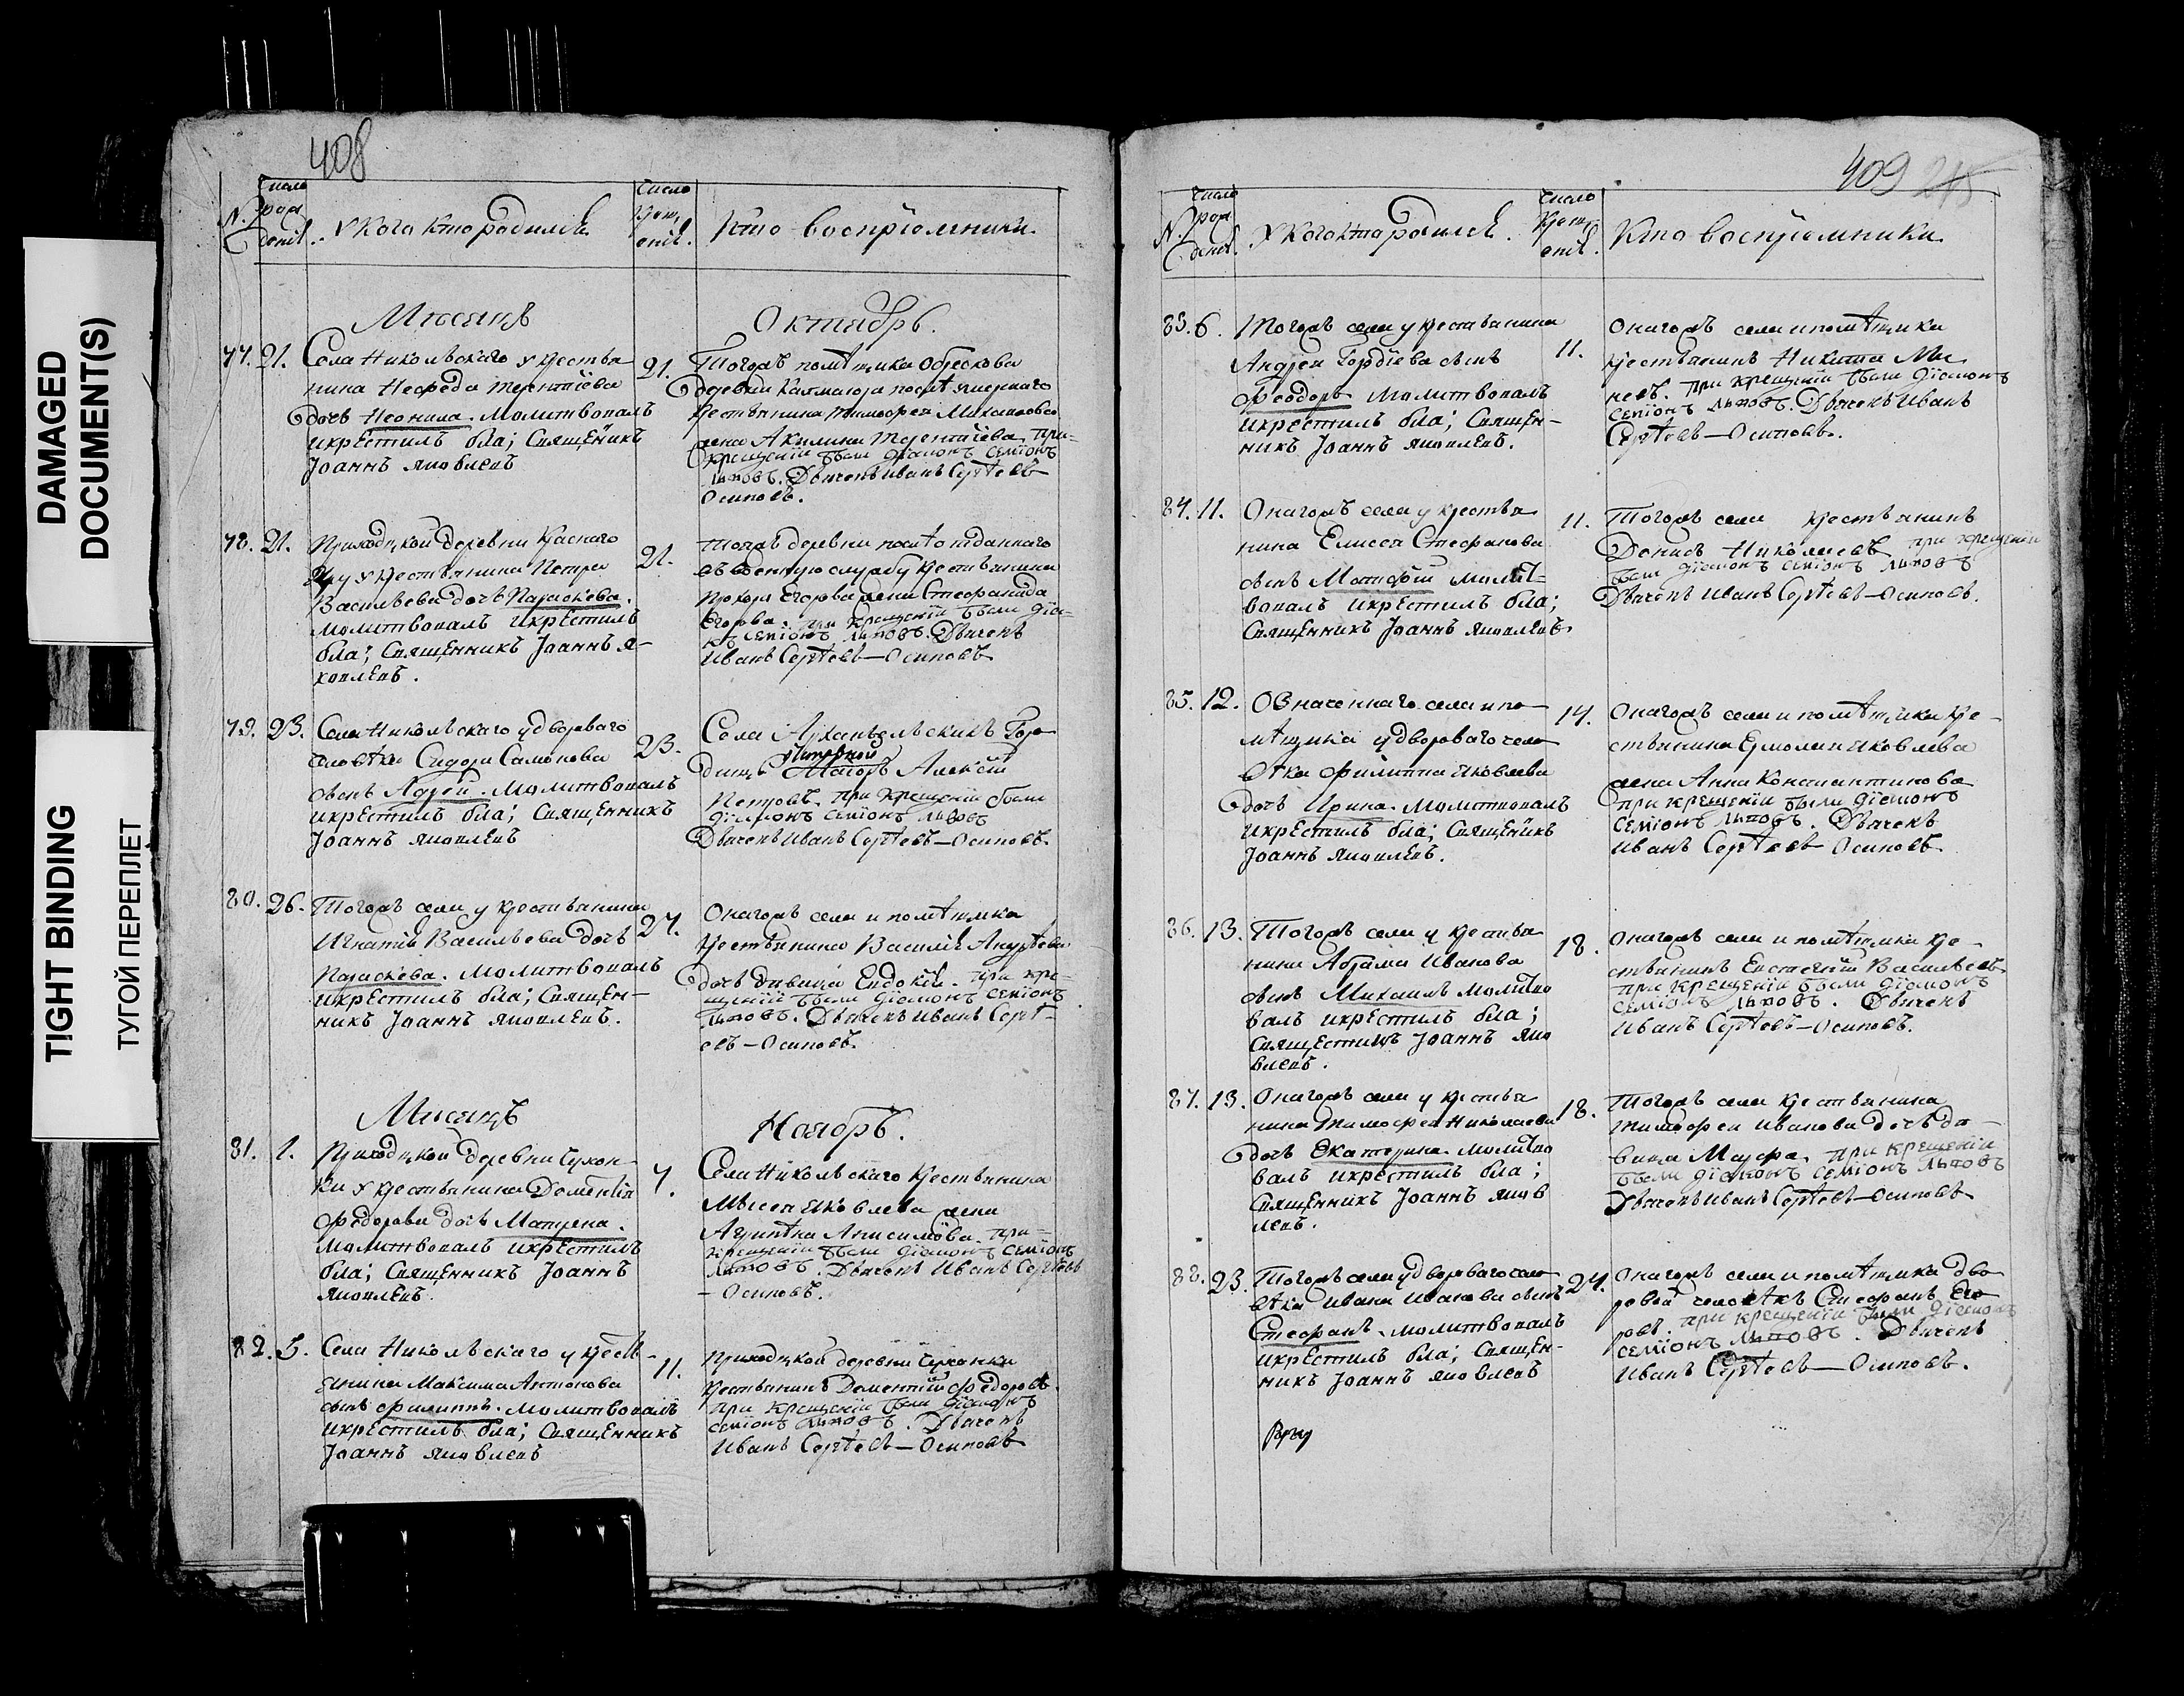 DAMAGED
DOCUMENT(S)
TIGHT BINDING
ТУГОЙ ПЕРЕПЛЕТ
408
N.
число
рож
дения.
У кого кто родился
число
крещ
ения.
Кто восприемники.
Месяцъ
Октябрь.
77. 21.
Села Никольскаго у крестья
нина Нефеда Терентіева
дочь Неонила. Молитвовалъ
икрестилъ бла; Священникъ
Іоаннъ Яковлевъ
21.
Тогожъ помѣщика Обрескова
деревни
крестьянина Тимофея Михайлова
жена Акилина Терентіева. при
крещеніи были діаконъ Семіонъ
Львовъ. Дьячекъ Иванъ Сергѣевъ
Осиповъ.
78. 21.
Приходцкой деревни Краснаго
Яру у крестьянина Петра
Васильева дочь Параскева.
молитвовалъ икрестилъ
бла; Священникъ Іоаннъ Я-
ковлевъ.
21.
Тойжъ деревни отданнаго
въ военную службу крестьянина
Егорова жена Стефанида
Егорова. при крещеніи были діа-
нъ Семіонъ Львовъ. Дьячекъ
Иванъ Сергѣевъ-Осиповъ
79. 23.
Села Никольскаго у двороваго
человѣка Сидора Самонова
сынъ Андрей. Молитвовалъ
икрестилъ бла; Священникъ
Іоаннъ Яковлевъ
23.
Села Архангельскихъ Горо
дищъ Маіоръ Алексѣй
Петровъ. при крещеніи были
діаконъ Семіонъ Львовъ
Дьячекъ Иванъ Сергѣевъ-Осиповъ.
80. 26.
Тогожъ села у крестьянина
Игнатія Васильева дочь
Параскева. Молитвовалъ
икрестилъ бла; Священ-
никъ Іоаннъ Яковлевъ.
27.
Онагожъ села и помѣщика
крестьянина Василія Андреева
дочь дѣвица Евдокія. при кре-
щеніи были діаконъ Семіонъ
Львовъ. Дьячекъ Иванъ Сергѣ-
евъ-Осиповъ.
Месяцъ
Ноябрь.
81. 1.
Приходцкой деревни Чухон
ки у крестьянина Дементія
Федорова дочь Матрена.
Молитвовалъ икрестилъ
бла; Священникъ Іоаннъ
Яковлевъ.
7.
Села Никольскаго крестьянина
Яковлева жена
Анисимова. при
крещеніи были діаконъ Семіонъ
Львовъ. Дьячекъ Иванъ Сергѣевъ
- Осиповъ.
82. 5.
Села Никольскаго у кресть-
янина Максима Антонова
сынъ Филиппъ. Молитвовалъ
икрестилъ бла; Священникъ
Іоаннъ Яковлевъ
11.
Приходцкой деревни Чухонки
крестьянинъ Дементій Федоровъ.
при крещеніи были діаконъ
Семіонъ Львовъ. Дьячекъ
Иванъ Сергѣевъ-Осиповъ
409
N.
число
рож
дения.
У кого кто родился.
число
крещ
ения.
Кто восприемники.
83. 6.
Тогожъ села у крестьянина
Андрея Гордіева сынъ
Феодоръ Молитвовалъ
икрестилъ бла; Священ-
никъ Іоаннъ Яковлевъ.
11.
Онагожъ села и помѣщика
крестьянинъ Никита Ми
невъ. при крещеніи были діаконъ
Семіонъ Львовъ. Дьячекъ Иванъ
Сергѣевъ-Осиповъ.
84. 11.
Онагожъ села у крестья
нина Елисея Стефанова
сынъ Матфей молит-
вовалъ икрестилъ бла;
Священникъ Іоаннъ Яковлевъ.
11.
Тогожъ села крестьянинъ
Денисъ Николаевъ при крещеніи
были діаконъ Семіонъ Львовъ
Дьячекъ Иванъ Сергѣевъ-Осиповъ.
85. 12.
Означеннаго села и по
мѣщика у двороваго чело
вѣка Филиппа Яковлева
дочь Ирина. Молитвовалъ
икрестилъ бла; Священикъ
Іоаннъ Яковлевъ.
14.
Онагожъ села и помѣщика кре-
стьянина Ермолая Яковлева
жена Анна Константинова
при крещеніи были діаконъ
Семіонъ Львовъ. Дьячекъ
Иванъ Сергѣевъ-Осиповъ.
86. 13.
Тогожъ села у крестья
нина Абрама Иванова
сынъ Михаилъ Молитво
валъ икрестилъ бла;
Священникъ Іоаннъ Яко
влевъ.
18.
Онагожъ села и помѣщика кре-
стьянинъ Евстафій Васильевъ
при крещеніи были діаконъ
Семіонъ Львовъ. Дьячекъ
Иванъ Сергѣевъ-Осиповъ.
87. 13.
Онагожъ села у крестья
нина Тимофея Николаева
дочь Екатерина. Молитво
валъ икрестилъ бла;
Священникъ Іоаннъ Яков
левъ.
18.
Тогожъ села крестьянина
Тимофея Иванова дочь дѣ-
вица Марфа. при крещеніи
были діаконъ Семіонъ Львовъ
Дьячекъ Иванъ Сергѣевъ-Осиповъ.
88. 23.
Тогожъ села у двороваго чело
вѣка Ивана Иванова сынъ
Стефанъ. Молитвовалъ
икрестилъ бла; Священ-
никъ Іоаннъ Яковлевъ
24.
Онагожъ села и помѣщика дво
ровой человѣкъ Стефанъ Его
ровъ. при крещеніи были діаконъ
Семіонъ Львовъ. Дьячекъ
Иванъ Сергѣевъ-Осиповъ.